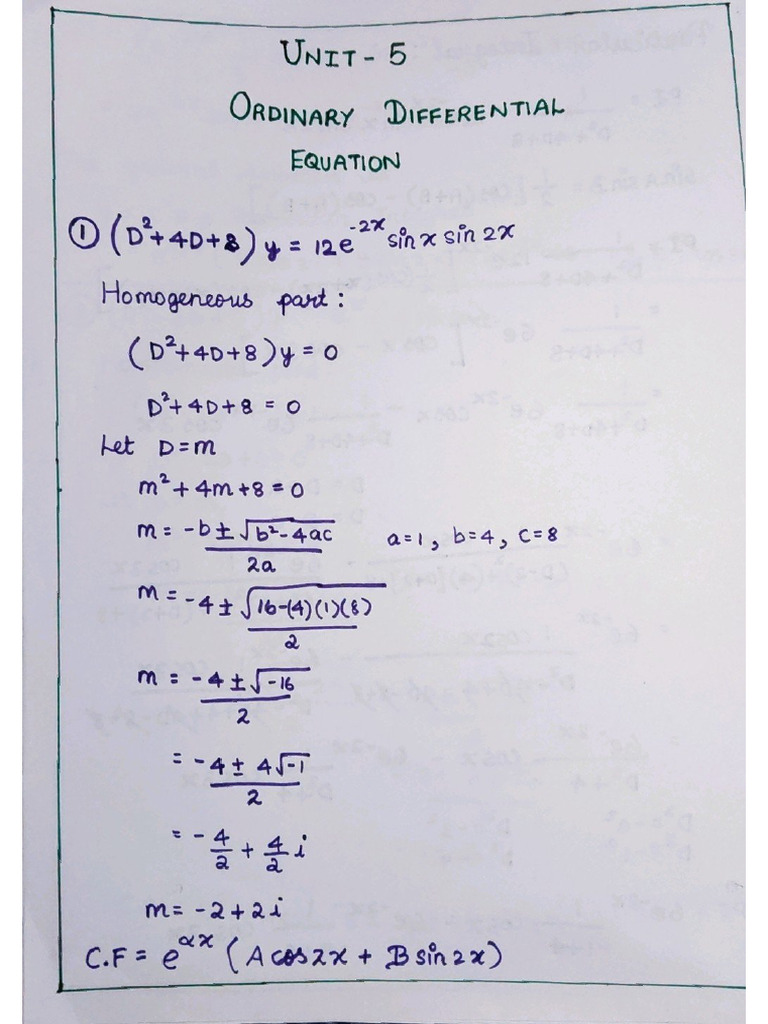 UNIT - 5
ORDINARY DIFFERENTIAL
EQUATION
① (D²+4D+8) y = 12e^-2x sin x sin 2x
Homogeneous part :
(D²+4D+8)y = 0
D²+4D+8 = 0
Let D=m
m²+4m+8=0
m = -b ± √b²-4ac / 2a a=1, b=4, c=8
m = -4 ± √16-(4)(1)(8) / 2
m = -4 ± √-16 / 2
= -4 ± 4√-1 / 2
= -4/2 + 4/2 i
m = -2+2i
C.F = e^αx (A cos 2x + B sin 2x)